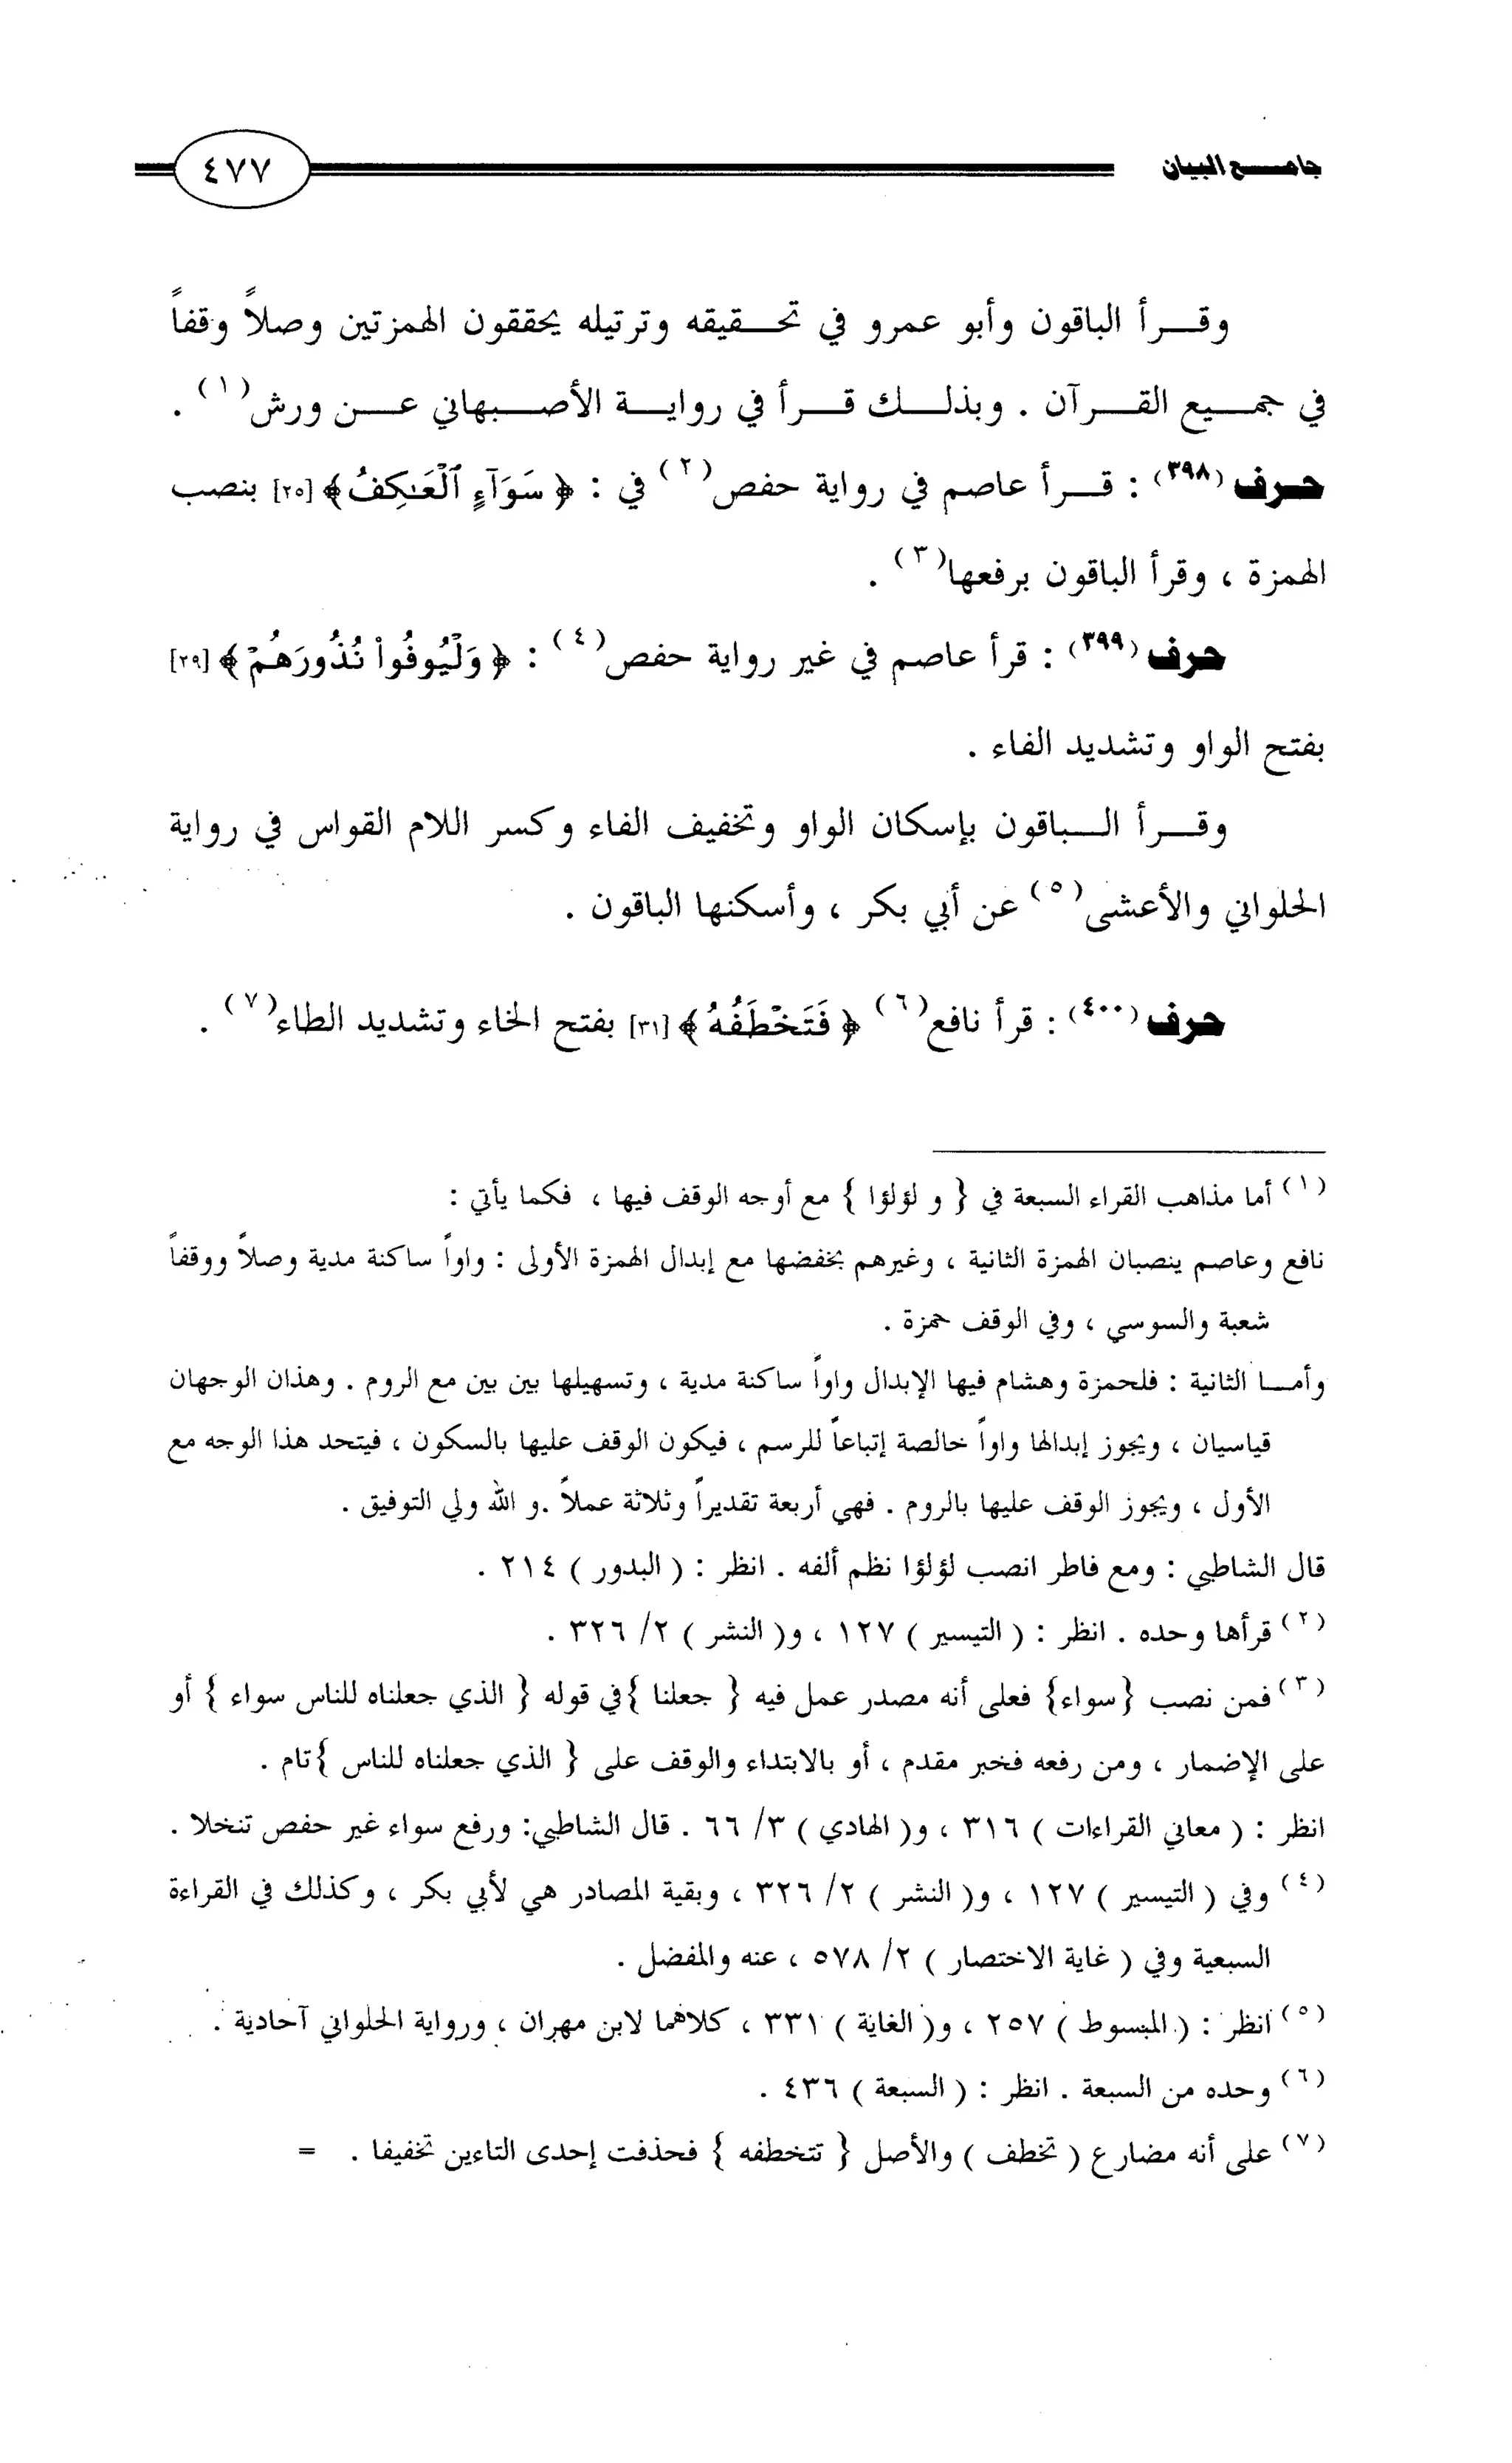 جامع البيان
٤٧٧
وقرأ الباقون وأبو عمرو في تحقيقه وترتيله يحققون الهمزتين وصلاً وقفاً
في جميع القرآن . وبذلك قرأ في رواية الأصبهاني عن ورش(١) .
حرف(٣٩٨) : قرأ عاصم في رواية حفص(٢) في : ﴿ سَوَآءٍ ٱلْعَـٰكِفُ ﴾[٢٥] بنصب
الهمزة ، وقرأ الباقون برفعها(٣) .
حرف(٣٩٩) : قرأ عاصم في غير رواية حفص(٤) : ﴿ وَلْيُوفُواْ نُذُورَهُمْ ﴾[٢٩]
بفتح الواو وتشديد الفاء .
وقرأ الباقون بإسكان الواو وتخفيف الفاء وكسر اللام القواس في رواية
الحلواني والأعشى(٥) عن أبي بكر ، وأسكنها الباقون .
حرف(٤٠٠) : قرأ نافع(٦) ﴿ فَتَخْطَفُهُ ﴾[٣١] بفتح الخاء وتشديد الطاء(٧) .
(١) أما مذاهب القراء السبعة في { و لؤلؤا } مع أوجه الوقف فيها ، فكما يأتي :
نافع وعاصم ينصبان الهمزة الثانية ، وغيرهم بخفضها مع إبدال الهمزة الأولى : واواً ساكنة مدية وصلاً ووقفاً
شعبة والسوسي ، وفي الوقف حمزة .
وأما الثانية : فلحمزة وهشام فيها الإبدال واواً ساكنة مدية ، وتسهيلها بين بين مع الروم . وهذان الوجهان
قياسيان ، ويجوز إبدالها واواً خالصة إتباعاً للرسم ، فيكون الوقف عليها بالسكون ، فيتحد هذا الوجه مع
الأول ، ويجوز الوقف عليها بالروم . فهي أربعة تقديراً وثلاثة عملاً .و الله ولي التوفيق .
قال الشاطبي : ومع فاطر انصب لؤلؤا نظم ألفه . انظر : ( البدور ) ٢١٤ .
(٢) قرأها وحده . انظر : ( التيسير ) ١٢٧ ، و( النشر ) ٢/ ٣٢٦ .
(٣) فمن نصب {سواء} فعلى أنه مصدر عمل فيه { جعلنا }في قوله { الذي جعلناه للناس سواء } أو
على الإضمار ، ومن رفعه فخبر مقدم ، أو بالابتداء والوقف على { الذي جعلناه للناس }تام .
انظر : ( معاني القراءات ) ٣١٦ ، و( الهادي ) ٣/ ٦٦ . قال الشاطبي: ورفع سواء غير حفص تنخلا .
(٤) وفي ( التيسير ) ١٢٧ ، و( النشر ) ٢/ ٣٢٦ ، وبقية المصادر هي لأبي بكر ، وكذلك في القراءة
السبعية وفي ( غاية الاختصار ) ٢/ ٥٧٨ ، عنه والمفضل .
(٥) انظر : ( المبسوط ) ٢٥٧ ، و( الغاية ) ٣٣١ ، كلاهما لابن مهران ، ورواية الحلواني آحادية .
(٦) وحده من السبعة . انظر : ( السبعة ) ٤٣٦ .
(٧) على أنه مضارع ( تخطف ) والأصل { تتخطفه } فحذفت إحدى التاءين تخفيفا . =